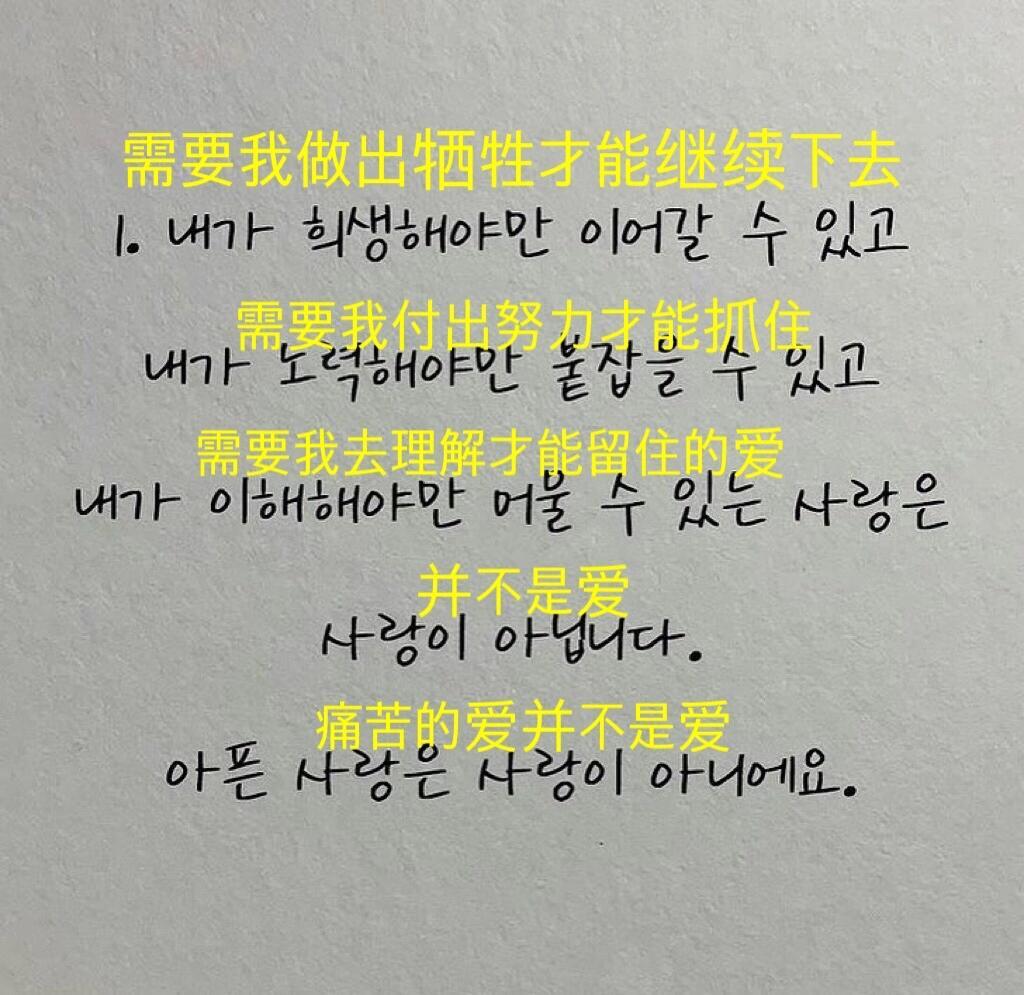 需要我做出牺牲才能继续下去
1. 내가 희생해야만 이어갈 수 있고
需要我付出努力才能抓住
내가 노력해야만 붙잡을 수 있고
需要我去理解才能留住的爱
내가 이해해야만 머물 수 있는 사랑은
并不是爱
사랑이 아닙니다.
痛苦的爱并不是爱
아픈 사랑은 사랑이 아니에요.